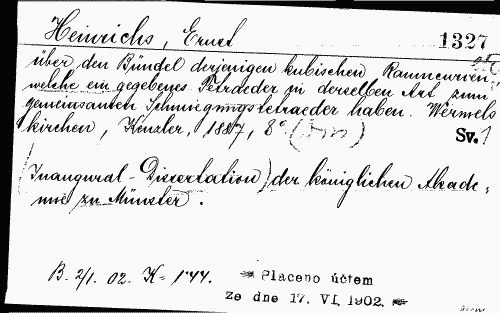 Heinrichs, Ernst
1327
über den Bündel derjenigen kubischen Raumcurven,
welche ein gegebenes Tetrdeder in derselben Art zum
gemeinsamen Schmiegungstetraeder haben. Wermels
kirchen, Kenzler, 1887, 8°
Sv. 1
(Inaugural-Dissertation) der königlichen Akade-
mie zu Münster.
B. 2/1. 02. K- 1'44.
Placeno účtem
ze dne 17. VI. 1902.